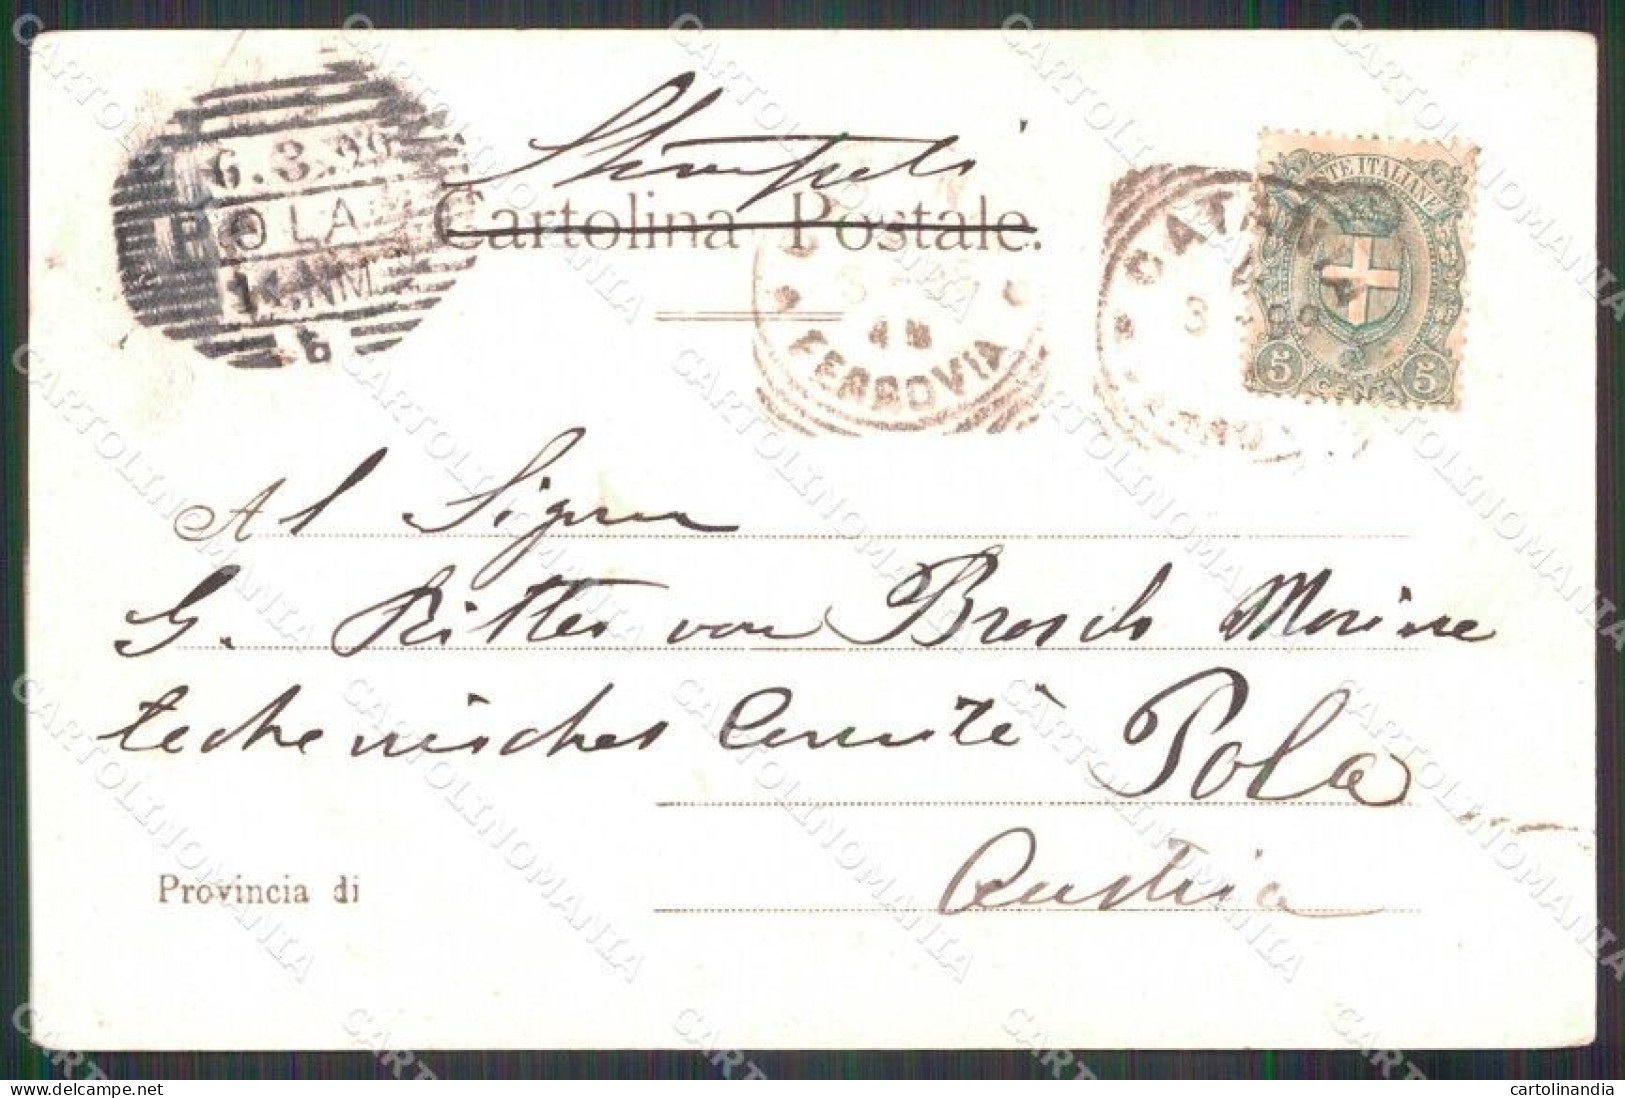 Stampati
Cartolina Postale.
6.3.99
POLA
1.NM
6
FERROVIA
CATANIA
3
POSTE ITALIANE
5 CENT. 5
Al Signor
G. Ritter von Brosch Marine
technisches Comité Pola
Austria
Provincia di
CARTOLINOMANIA
cartolinandia